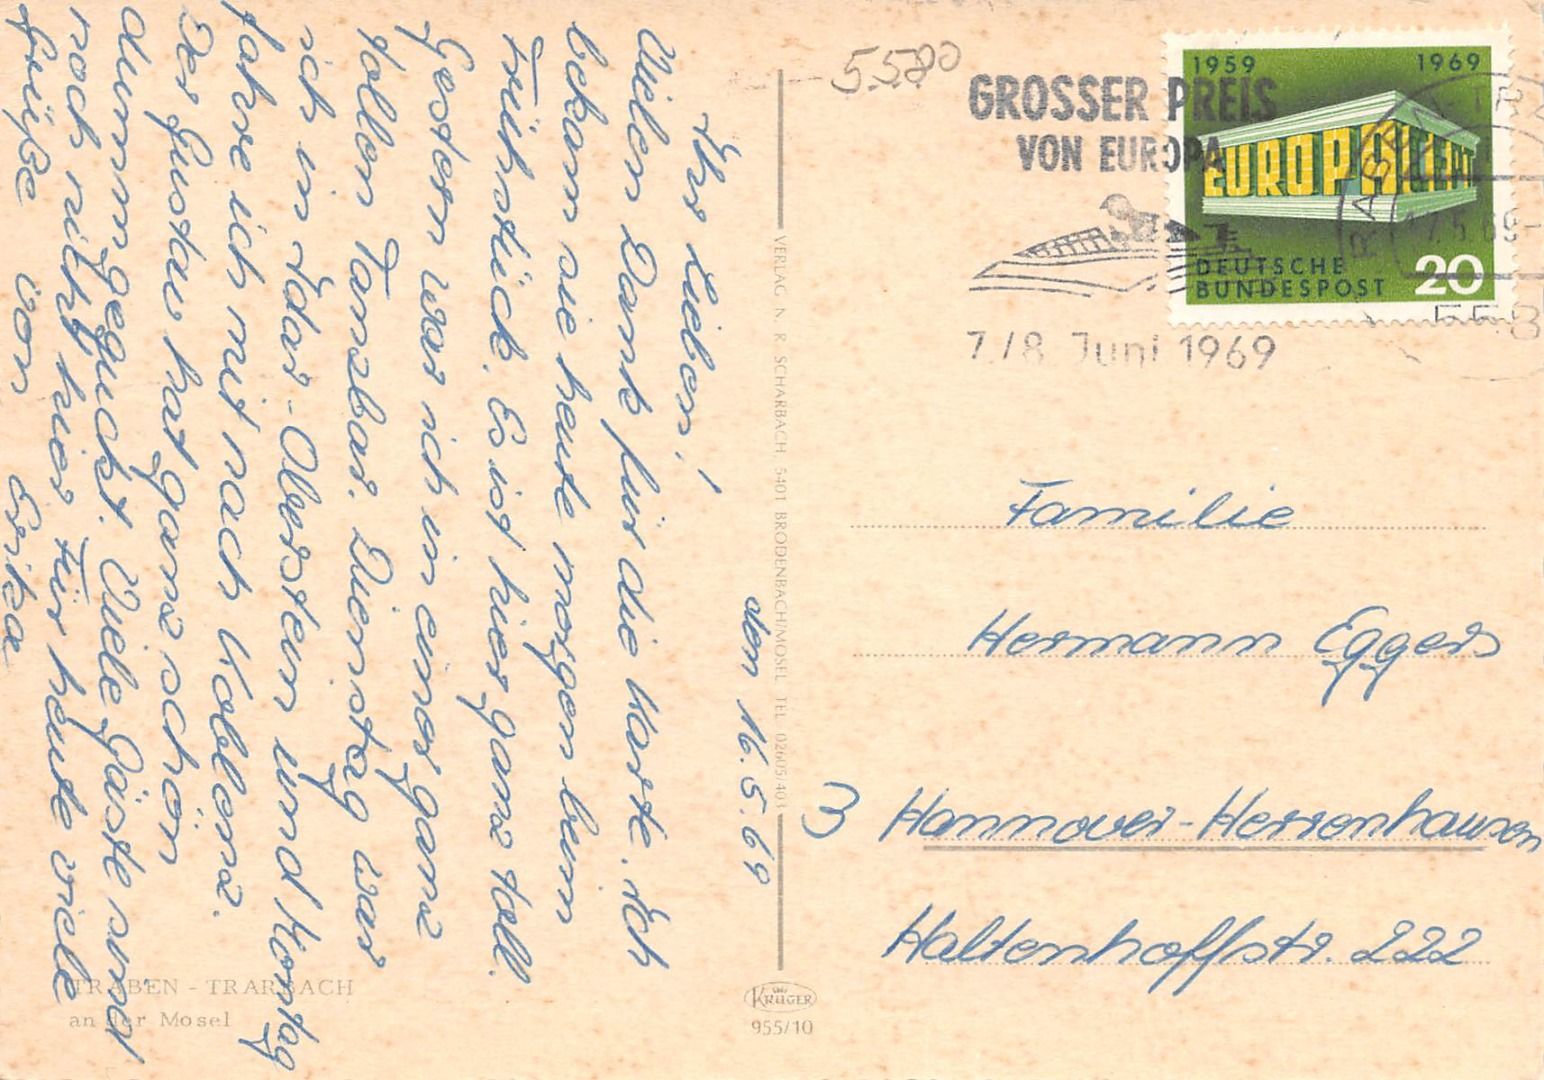 den 16.5.69
Ihr Lieben!
Vielen Dank für die Karte. Ich
bekam sie heute morgen beim
Frühstück. Es ist hier ganz toll.
Gestern war ich in einer ganz
tollen Tanzbar. Dienstag war
ich in Idar-Oberstein und Montag
fahre ich mit nach Koblenz.
Der Gustav hat ganz schön
dumm geguckt. Viele Gäste sind
noch nicht hier. Für heute viele
Grüße von Erika
TRABEN - TRARBACH
an der Mosel
VERLAG N. R. SCHARBACH 5401 BRODENBACH/MOSEL TEL 02605/403
KRÜGER
955/10
5580
GROSSER PREIS
VON EUROPA
7./8. Juni 1969
1959 1969
EUROPA CEPT
DEUTSCHE
BUNDESPOST 20
5.69
558
Familie
Hermann Eggers
3 Hannover-Herrenhausen
Haltenhoffstr. 222